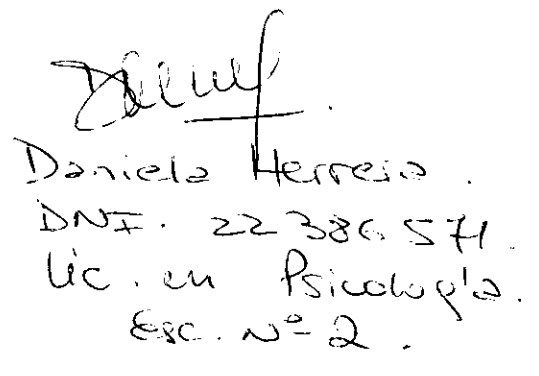 Daniela Herrera.
DNI. 22 386 571.
Lic. en Psicología.
Esc. Nº 2.